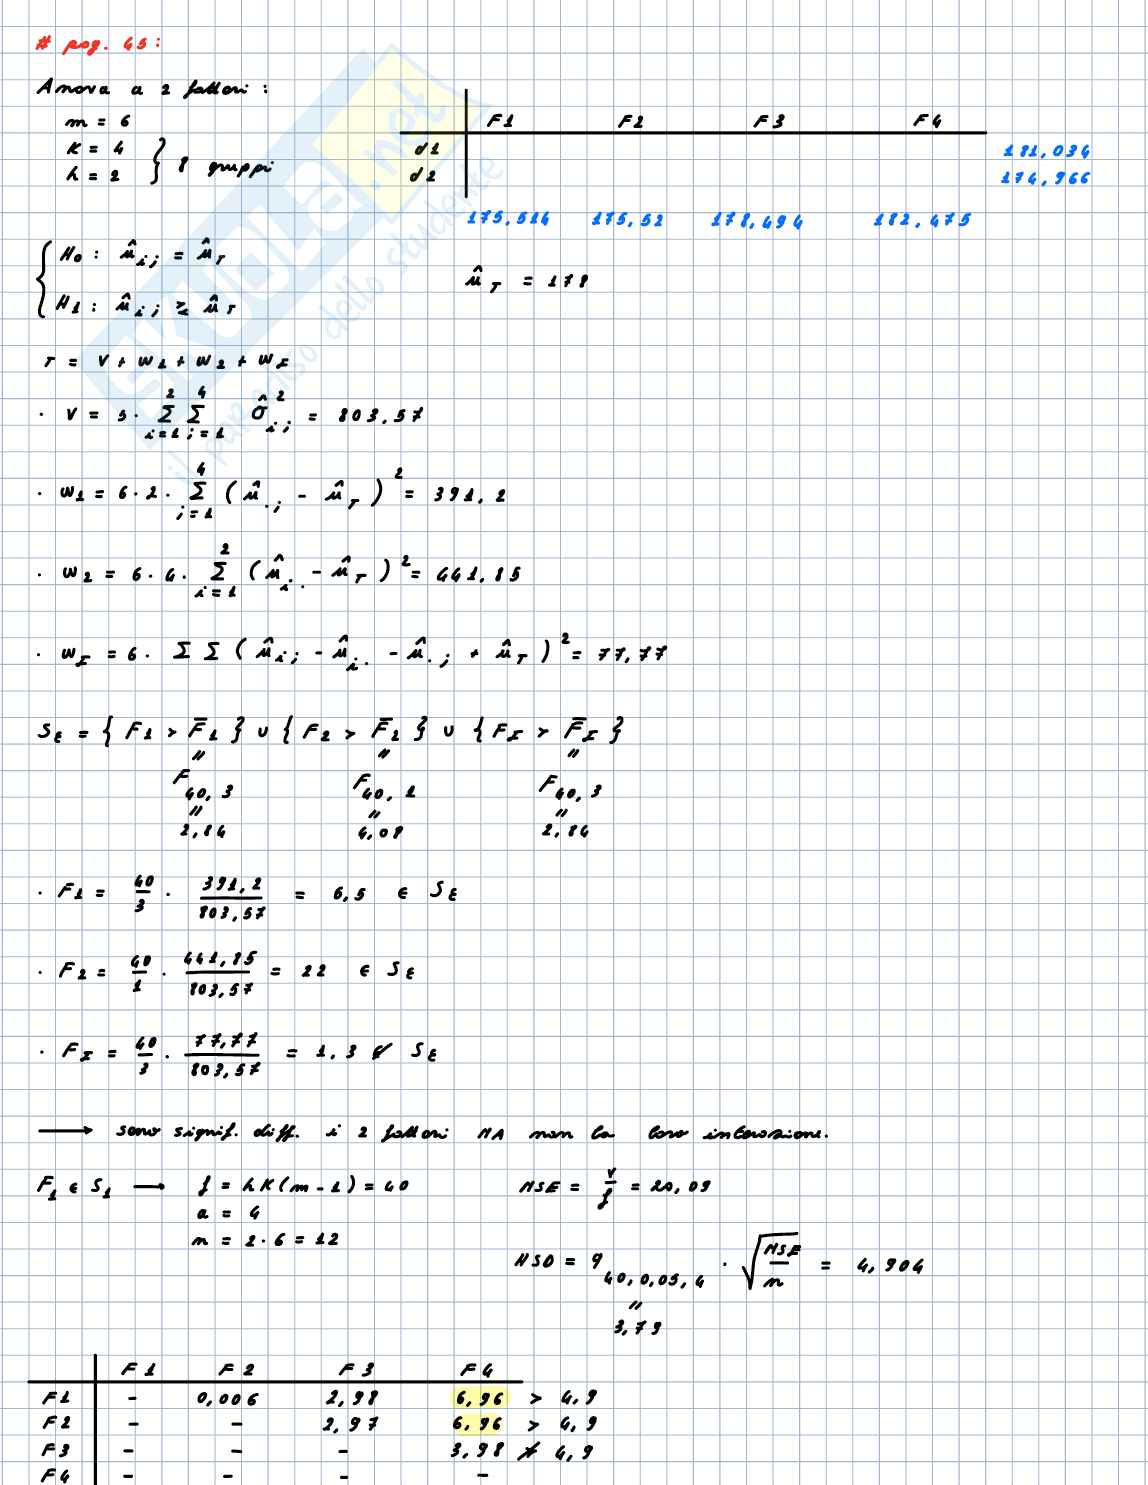 # pag. 45:
Anova a 2 fattori:
m = 6
K = 4
h = 2
} 8 gruppi
F1 F2 F3 F4
d1 181,034
d2 174,966
175,514 175,52 178,494 182,475
H0: μ̂ij = μ̂T
H1: μ̂ij ≷ μ̂T
μ̂T = 178
T = V + W1 + W2 + WI
· V = 5 · Σ(i=1, 2) Σ(j=1, 4) σ̂²ij = 803,57
· W1 = 6 · 2 · Σ(j=1, 4) (μ̂.j - μ̂T)² = 391,2
· W2 = 6 · 4 · Σ(i=1, 2) (μ̂i. - μ̂T)² = 441,85
· WI = 6 · Σ Σ (μ̂ij - μ̂i. - μ̂.j + μ̂T)² = 77,77
SE = { F1 > F̄1 } ∪ { F2 > F̄2 } ∪ { FI > F̄I }
" " "
F40,3 F40,1 F40,3
" " "
2,84 4,08 2,84
· F1 = 40/3 · 391,2/803,57 = 6,5 ∈ SE
· F2 = 40/1 · 441,85/803,57 = 22 ∈ SE
· FI = 40/3 · 77,77/803,57 = 1,3 ∉ SE
→ sono signif. diff. i 2 fattori MA non la loro interazione.
F1 ∈ S1 → f = hK(m-1) = 40 MSE = V/f = 20,09
a = 4
n = 2·6 = 12
HSD = q40,0,05,4 · √(MSE/n) = 4,904
"
3,79
F1 F2 F3 F4
F1 - 0,006 2,98 6,96 > 4,9
F2 - - 2,97 6,96 > 4,9
F3 - - - 3,98 ≯ 4,9
F4 - - - -
SKUOLA.net
il paradiso dello studente